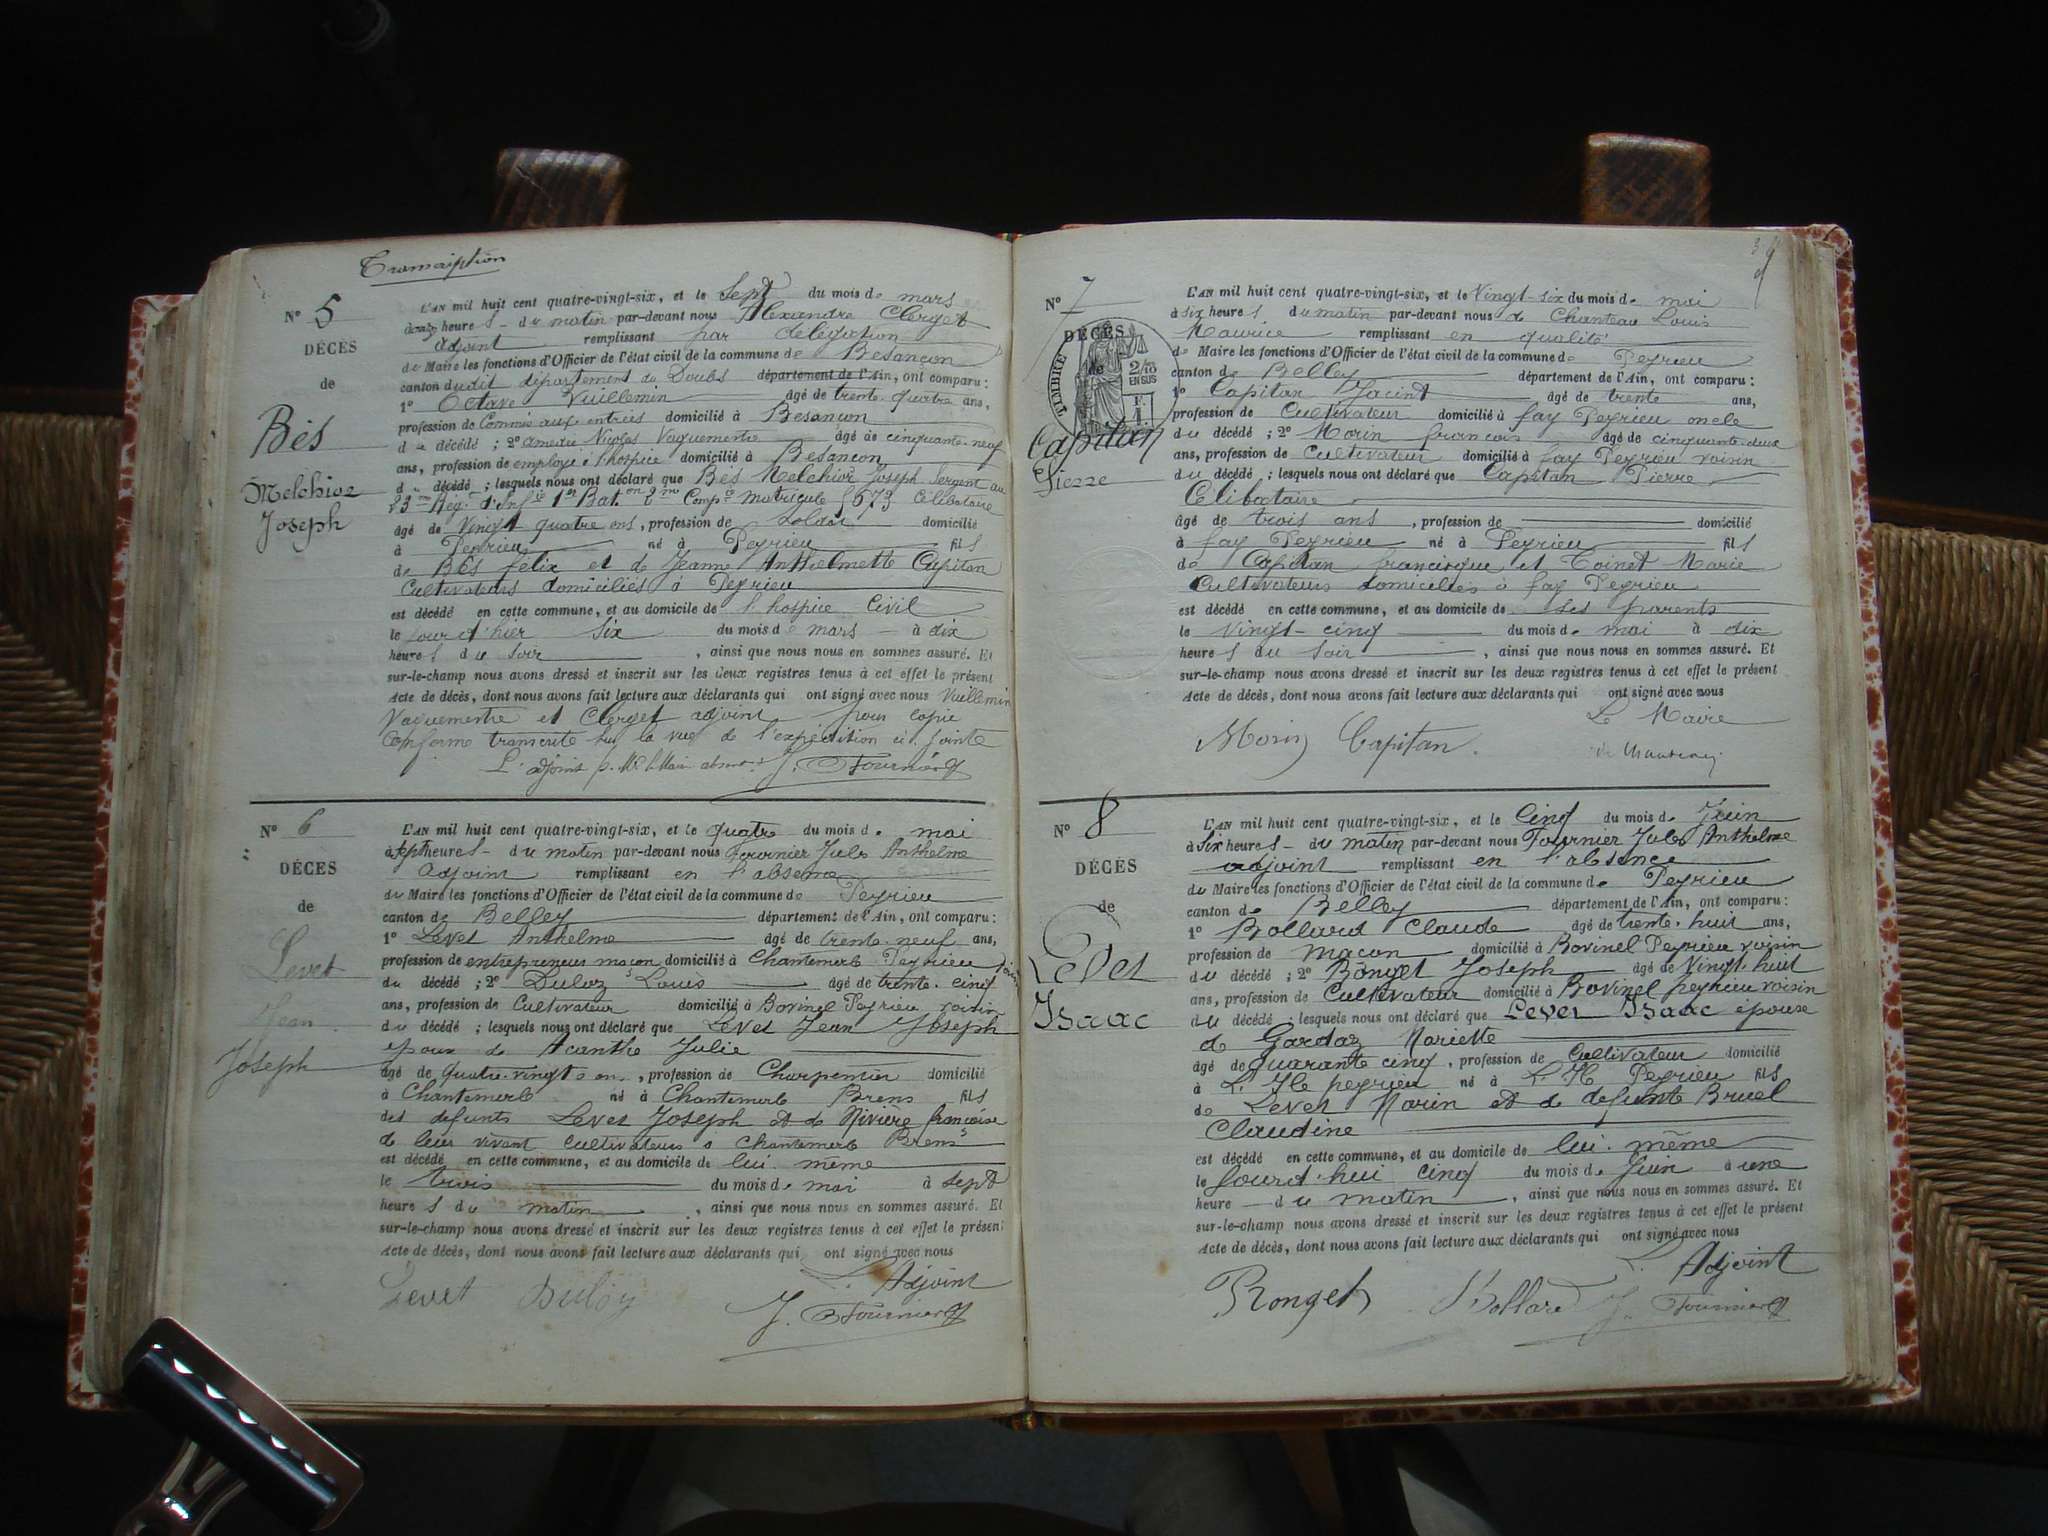 Transcription
N° 5
DÉCÈS
de
Bés
Melchior
Joseph
L'AN mil huit cent quatre-vingt-six, et le Sept du mois de mars
à onze heures du matin par-devant nous Alexandre Clerget
adjoint remplissant par délégation
de Maire les fonctions d'Officier de l'état civil de la commune de Besançon
canton dudit département du Doubs département de l'Ain, ont comparu :
1° Octave Vuillemin âgé de trente quatre ans,
profession de Commis aux entrées domicilié à Besançon
d décédé ; 2° amédée Nicolas Vaguemestre âgé de cinquante neuf
ans, profession de employé à l'hospice domicilié à Besançon
d décédé ; lesquels nous ont déclaré que Bés Melchior Joseph Sergent au
23me Rég. d'Infie 1er Baton 2me Compie Matricule 5673 Célibataire
âgé de Vingt quatre ans, profession de soldat domicilié
à Peyrieu né à Peyrieu fils
de Bés félix et de Jeanne Anthelmette Capitan
Cultivateurs domiciliés à Peyrieu
est décédé en cette commune, et au domicile de l'hospice Civil
le jour d'hier six du mois de mars à dix
heures du soir, ainsi que nous nous en sommes assuré. Et
sur-le-champ nous avons dressé et inscrit sur les deux registres tenus à cet effet le présent
Acte de décès, dont nous avons fait lecture aux déclarants qui ont signé avec nous Vuillemin
Vaguemestre et Clerget adjoint pour copie
Conforme transcrite sur la vue de l'expédition ci-jointe
L'adjoint p. Mr le Maire absent J. Fournier
N° 6
DÉCÈS
de
Levet
Jean
Joseph
L'AN mil huit cent quatre-vingt-six, et le quatre du mois de mai
à sept heures du matin par-devant nous Fournier Jules Anthelme
adjoint remplissant en l'absence
du Maire les fonctions d'Officier de l'état civil de la commune de Peyrieu
canton de Belley département de l'Ain, ont comparu :
1° Levet Anthelme âgé de trente-neuf ans,
profession de entrepreneur maçon domicilié à Chantemerle Peyrieu voisin
du décédé ; 2° Duloz Louis âgé de trente-cinq
ans, profession de Cultivateur domicilié à Bovinel Peyrieu voisin
du décédé ; lesquels nous ont déclaré que Levet Jean Joseph
époux de Acanthe Julie
âgé de quatre-vingts ans, profession de Charpentier domicilié
à Chantemerle né à Chantemerle Brens fils
des defunts Levet Joseph et de Rivière françoise
de leur vivant cultivateurs à Chantemerle Brens
est décédé en cette commune, et au domicile de lui-même
le trois du mois de mai à sept
heures du matin, ainsi que nous nous en sommes assuré. Et
sur-le-champ nous avons dressé et inscrit sur les deux registres tenus à cet effet le présent
Acte de décès, dont nous avons fait lecture aux déclarants qui ont signé avec nous
L'Adjoint
Levet Duloz J. Fournier
N° 7
DÉCÈS
de
TIMBRE
2/10
EN SUS
Capitan
Pierre
L'AN mil huit cent quatre-vingt-six, et le Vingt-six du mois de mai
à six heures du matin par-devant nous de Chanteau Louis
Maurice remplissant en qualité
de Maire les fonctions d'Officier de l'état civil de la commune de Peyrieu
canton de Belley département de l'Ain, ont comparu :
1° Capitan Jacint âgé de trente ans,
profession de Cultivateur domicilié à fay Peyrieu oncle
du décédé ; 2° Morin françois âgé de cinquante-deux
ans, profession de Cultivateur domicilié à fay Peyrieu voisin
du décédé ; lesquels nous ont déclaré que Capitan Pierre
Célibataire
âgé de trois ans, profession de domicilié
à fay Peyrieu né à Peyrieu fils
de Capitan francisque et Toinet Marie
Cultivateurs domiciliés à fay Peyrieu
est décédé en cette commune, et au domicile de ses parents
le Vingt-cinq du mois de mai à dix
heures du soir, ainsi que nous nous en sommes assuré. Et
sur-le-champ nous avons dressé et inscrit sur les deux registres tenus à cet effet le présent
Acte de décès, dont nous avons fait lecture aux déclarants qui ont signé avec nous
Le Maire
Morin Capitan
N° 8
DÉCÈS
de
Levet
Isaac
L'AN mil huit cent quatre-vingt-six, et le Cinq du mois de Juin
à Six heures du matin par-devant nous Fournier Jules Anthelme
adjoint remplissant en l'absence
du Maire les fonctions d'Officier de l'état civil de la commune de Peyrieu
canton de Belley département de l'Ain, ont comparu :
1° Bollard Claude âgé de trente-huit ans,
profession de maçon domicilié à Bovinel Peyrieu voisin
du décédé ; 2° Ronget Joseph âgé de Vingt-huit
ans, profession de Cultivateur domicilié à Bovinel peyrieu voisin
du décédé ; lesquels nous ont déclaré que Levet Isaac époux
de Gardaz Mariette
âgé de quarante cinq, profession de Cultivateur domicilié
à L'Ile peyrieu né à L'Ile Peyrieu fils
de Levet Marin et de defunte Bruel
Claudine
est décédé en cette commune, et au domicile de lui-même
le Jourd'hui cinq du mois de Juin à une
heure du matin, ainsi que nous nous en sommes assuré. Et
sur-le-champ nous avons dressé et inscrit sur les deux registres tenus à cet effet le présent
Acte de décès, dont nous avons fait lecture aux déclarants qui ont signé avec nous
L'Adjoint
Ronget Bollard J. Fournier